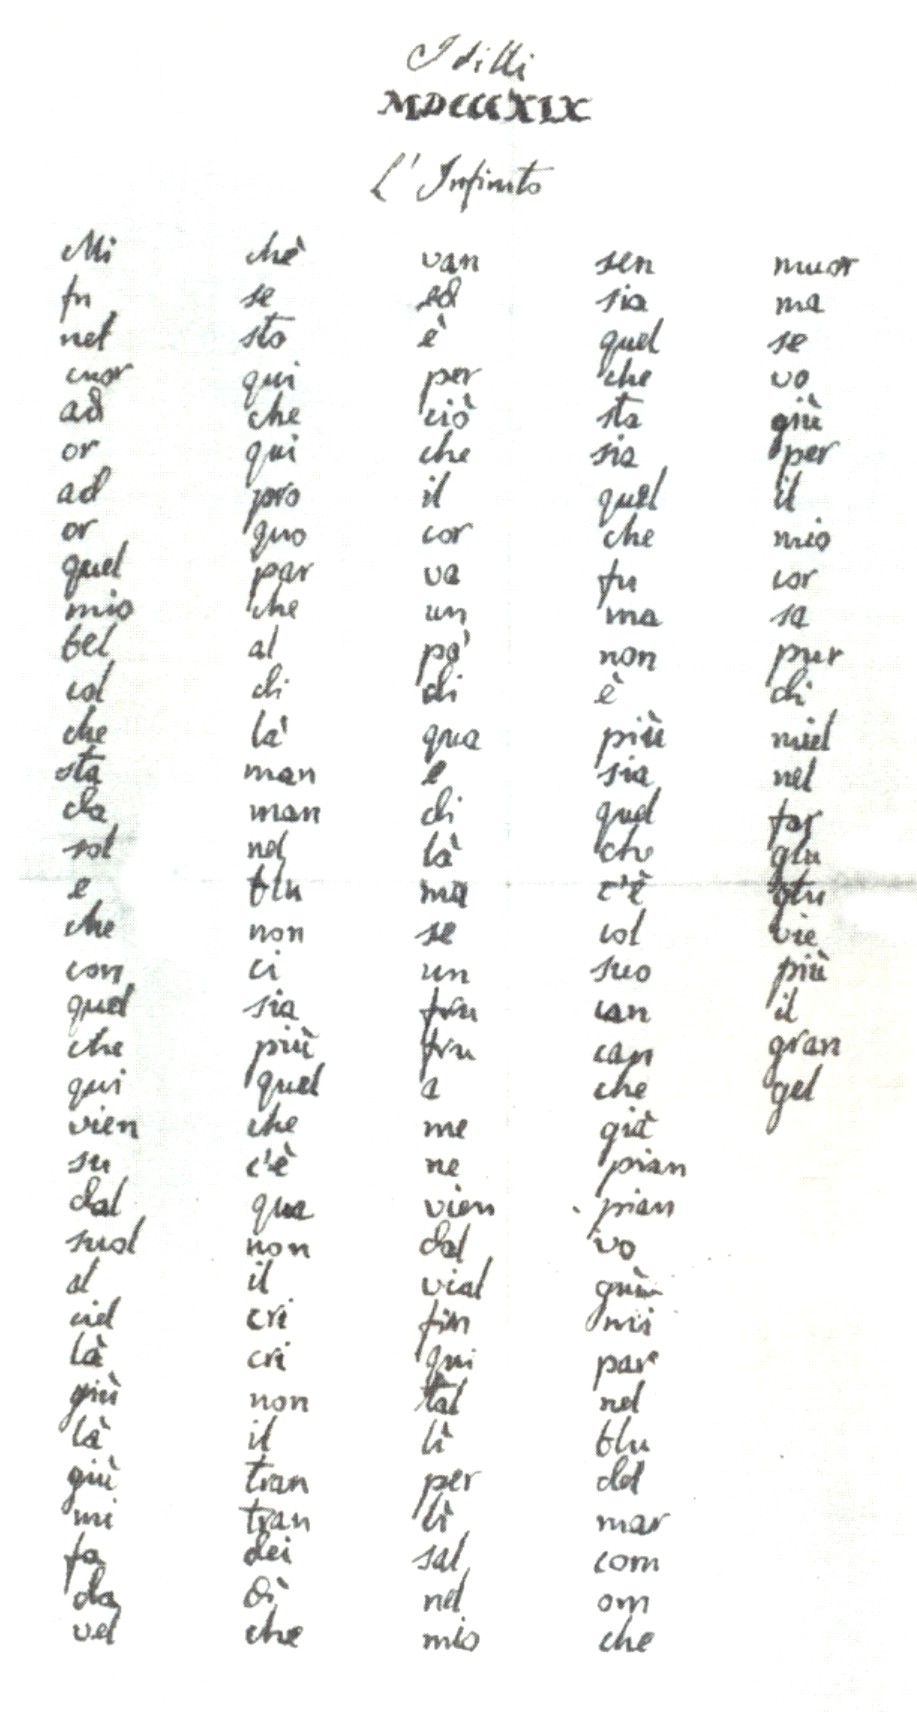 Idilli
MDCCCXIX
L'Infinito
Mi
fu
nel
cuor
ad
or
ad
or
quel
mio
bel
col
che
sta
da
sol
e
che
con
quel
che
qui
vien
su
dal
suol
al
ciel
là
giù
là
giù
mi
fa
da
vel
chè
se
sto
qui
che
qui
pro
quo
par
che
al
di
là
man
man
nel
blu
non
ci
sia
più
quel
che
c'è
qua
non
il
cri
cri
non
il
tran
tran
dei
dì
che
van
ed
è
per
ciò
che
il
cor
va
un
po'
di
qua
e
di
là
ma
se
un
fru
fru
a
me
ne
vien
dal
vial
fin
qui
tal
lì
per
lì
sal
nel
mio
sen
sia
quel
che
sta
sia
quel
che
fu
ma
non
è
più
sia
quel
che
c'è
col
suo
can
can
che
già
pian
pian
vo
giù
mi
par
nel
blu
del
mar
com
om
che
muor
ma
se
vo
giù
per
il
mio
cor
sa
pur
di
miel
nel
far
glu
glu
vie
più
il
gran
gel